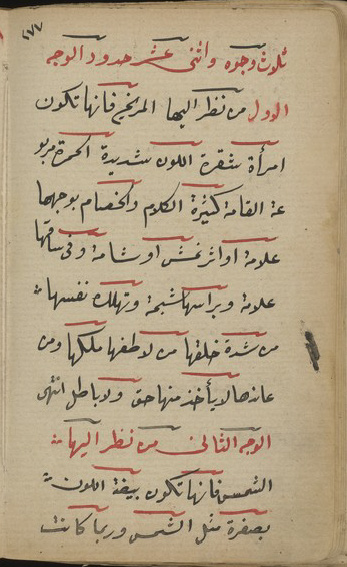 ٤٧٧
ثلاث وجوه واثنى عشر حدود الوجه
الاول من نظر اليها المريخ فانها تكون
امرأة شقرة اللون شديدة الحمرة مربو
عة القامة كثيرة الكلام والخصام بوجهها
علامة او اثر نمش او شامة وفى ساقها
علامة وبراسها شجة وتهلك نفسها
من شدة خلقها من لاطفها ملكها ومن
عاندها لا يأخذ منها حق ولا باطل انتهى
الوجه الثانى من نظر اليها
الشمس فانها تكون بيضة اللون
بصفرة مثل الشمس وربما كانت